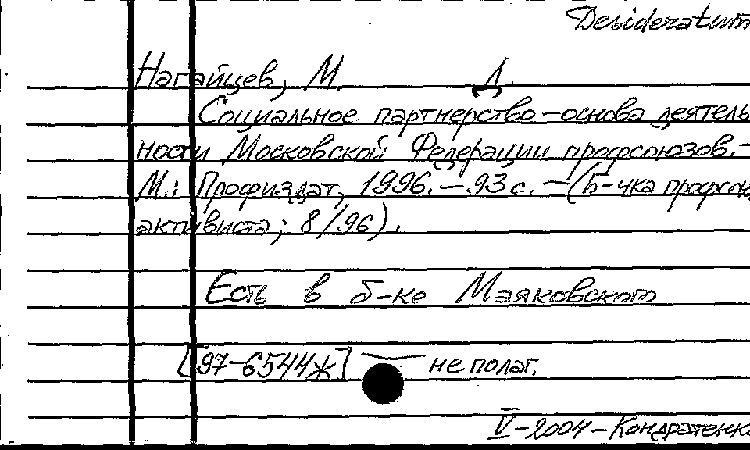 Desideratum
Нагайцев, М. Д
Социальное партнерство – основа деятель
ности Московской Федерации профсоюзов. –
М.: Профиздат, 1996. – 93 с. – (Б-чка профсою
активиста; 8/96).
Есть в б-ке Маяковского
[97-6544ж] не полаг.
V-2004 – Кондратенко